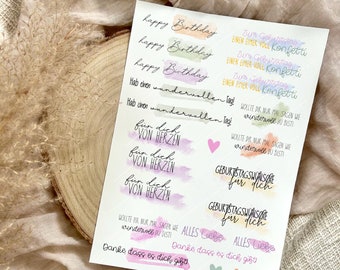 happy Birthday
happy Birthday
happy Birthday
Hab einen wundervollen Tag!
Hab einen wundervollen Tag!
für dich
VON HERZEN
für dich
VON HERZEN
für dich
VON HERZEN
WOLLTE DIR NUR MAL SAGEN WIE
wundervoll DU BIST!
Danke dass es dich gibt
Zum Geburtstag
EINEN EIMER VOLL Konfetti
Zum Geburtstag
EINEN EIMER VOLL Konfetti
WOLLTE DIR NUR MAL SAGEN WIE
wundervoll DU BIST!
WOLLTE DIR NUR MAL SAGEN WIE
wundervoll DU BIST!
GEBURTSTAGSWÜNSCHE
für dich
GEBURTSTAGSWÜNSCHE
für dich
ALLES Liebe
ALLES Liebe
Danke dass es dich gibt